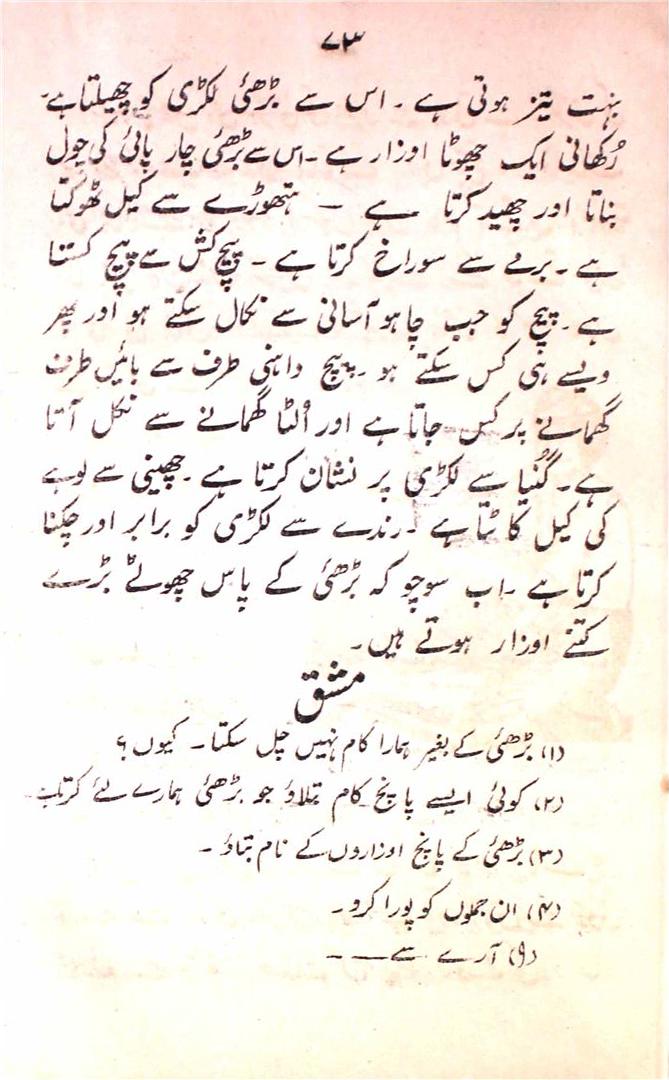 ۷۳
بہت تیز ہوتی ہے ۔ اس سے بڑھئی لکڑی کو چھیلتا ہے۔
رُکھانی ایک چھوٹا اوزار ہے ۔ اس سے بڑھئی چار پائی کی چول
بناتا اور چھید کرتا ہے – ہتھوڑے سے کیل ٹھوکتا
ہے ۔ برمے سے سوراخ کرتا ہے ۔ پیچ کش سے پیچ کستا
ہے ۔ پیچ کو جب چاہو آسانی سے نکال سکتے ہو اور پھر
ویسے ہی کس سکتے ہو ۔ پیچ داہنی طرف سے بائیں طرف
گھمانے پر کس جاتا ہے اور اُلٹا گھمانے سے نکل آتا
ہے ۔ گُنیا سے لکڑی پر نشان کرتا ہے ۔ چھینی سے لوہے
کی کیل کاٹتا ہے ۔ رندے سے لکڑی کو برابر اور چکنا
کرتا ہے ۔ اب سوچو کہ بڑھئی کے پاس چھوٹے بڑے
کتنے اوزار ہوتے ہیں۔
مشق
(۱) بڑھئی کے بغیر ہمارا کام نہیں چل سکتا ۔ کیوں ؟
(۲) کوئی ایسے پانچ کام بتلاؤ جو بڑھئی ہمارے لئے کرتا ہے۔
(۳) بڑھئی کے پانچ اوزاروں کے نام بتاؤ ۔
(۴) ان جملوں کو پورا کرو ۔
(۹) آرے سے ــــ ــ ــ